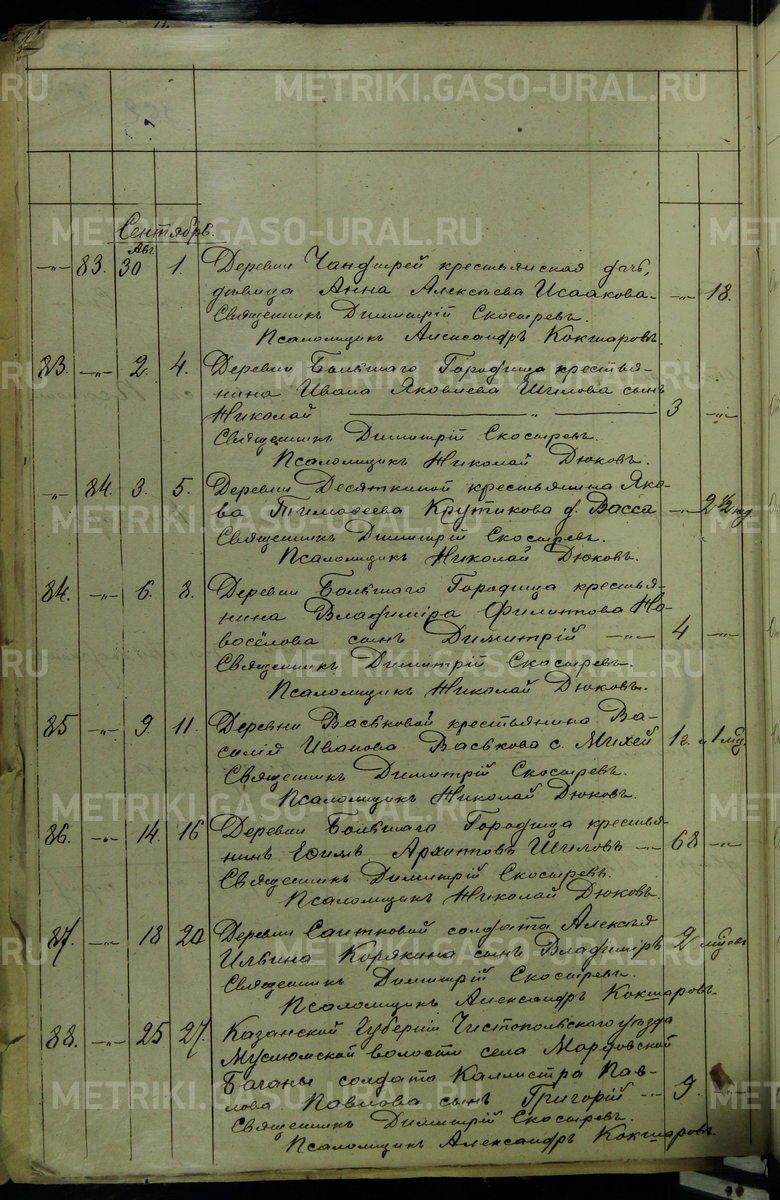 Сентябрь.
Авг.
—„— 83. 30 1. Деревни Чандырей крестьянская дочь,
дѣвица Анна Алексѣева Исаакова. —„— 18.
Священникъ Димитрій Скосыревъ.
Псаломщикъ Александръ Кокшаровъ.
83. —„— 2. 4. Деревни Большаго Городища крестья-
нина Ивана Яковлева Шилова сынъ
Николай —„— 3 —„—
Священникъ Димитрій Скосыревъ.
Псаломщикъ Николай Дюковъ.
„ 84. 3. 5. Деревни Десяткиной крестьянина Яко-
ва Тимоѳеева Крутикова д. Васса —„— 2 1/2 нед.
Священникъ Димитрій Скосыревъ.
Псаломщикъ Николай Дюковъ.
84. —„— 6. 8. Деревни Большаго Городища крестья-
нина Владиміра Филиппова Но-
восёлова сынъ Димитрій —„— 4 —„—
Священникъ Димитрій Скосыревъ.
Псаломщикъ Николай Дюковъ.
85 —„— 9. 11. Деревни Васьковой крестьянина Ва-
силія Иванова Васькова с. Михей 1 г. и 1 мѣс.
Священникъ Димитрій Скосыревъ.
Псаломщикъ Николай Дюковъ.
86. —„— 14. 16 Деревни Большаго Городища крестья-
нинъ Ефимъ Архиповъ Шиловъ —„— 68 —„—
Священникъ Димитрій Скосыревъ.
Псаломщикъ Николай Дюковъ.
87. —„— 18 20 Деревни Саитковой солдата Алексѣя
Ильина Корякина сынъ Владиміръ 2 мѣсяц.
Священникъ Димитрій Скосыревъ.
Псаломщикъ Александръ Кокшаровъ.
88. —„— 25 27. Казанской Губерніи Чистопольскаго уѣзда
Муслюмской волости села Мордовской
Баганы солдата Каллистра Пав-
лова Павлова сынъ Григорій —„— 9.
Священникъ Димитрій Скосыревъ.
Псаломщикъ Александръ Кокшаровъ.
METRIKI.GASO-URAL.RU